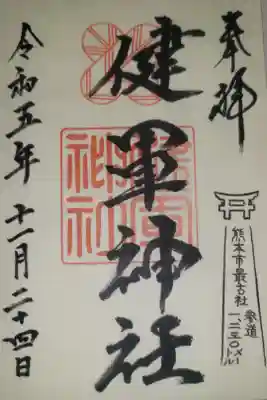 奉拝
熊本市最古社
参道
一、二三〇メートル
健軍神社
令和五年十一月二十四日